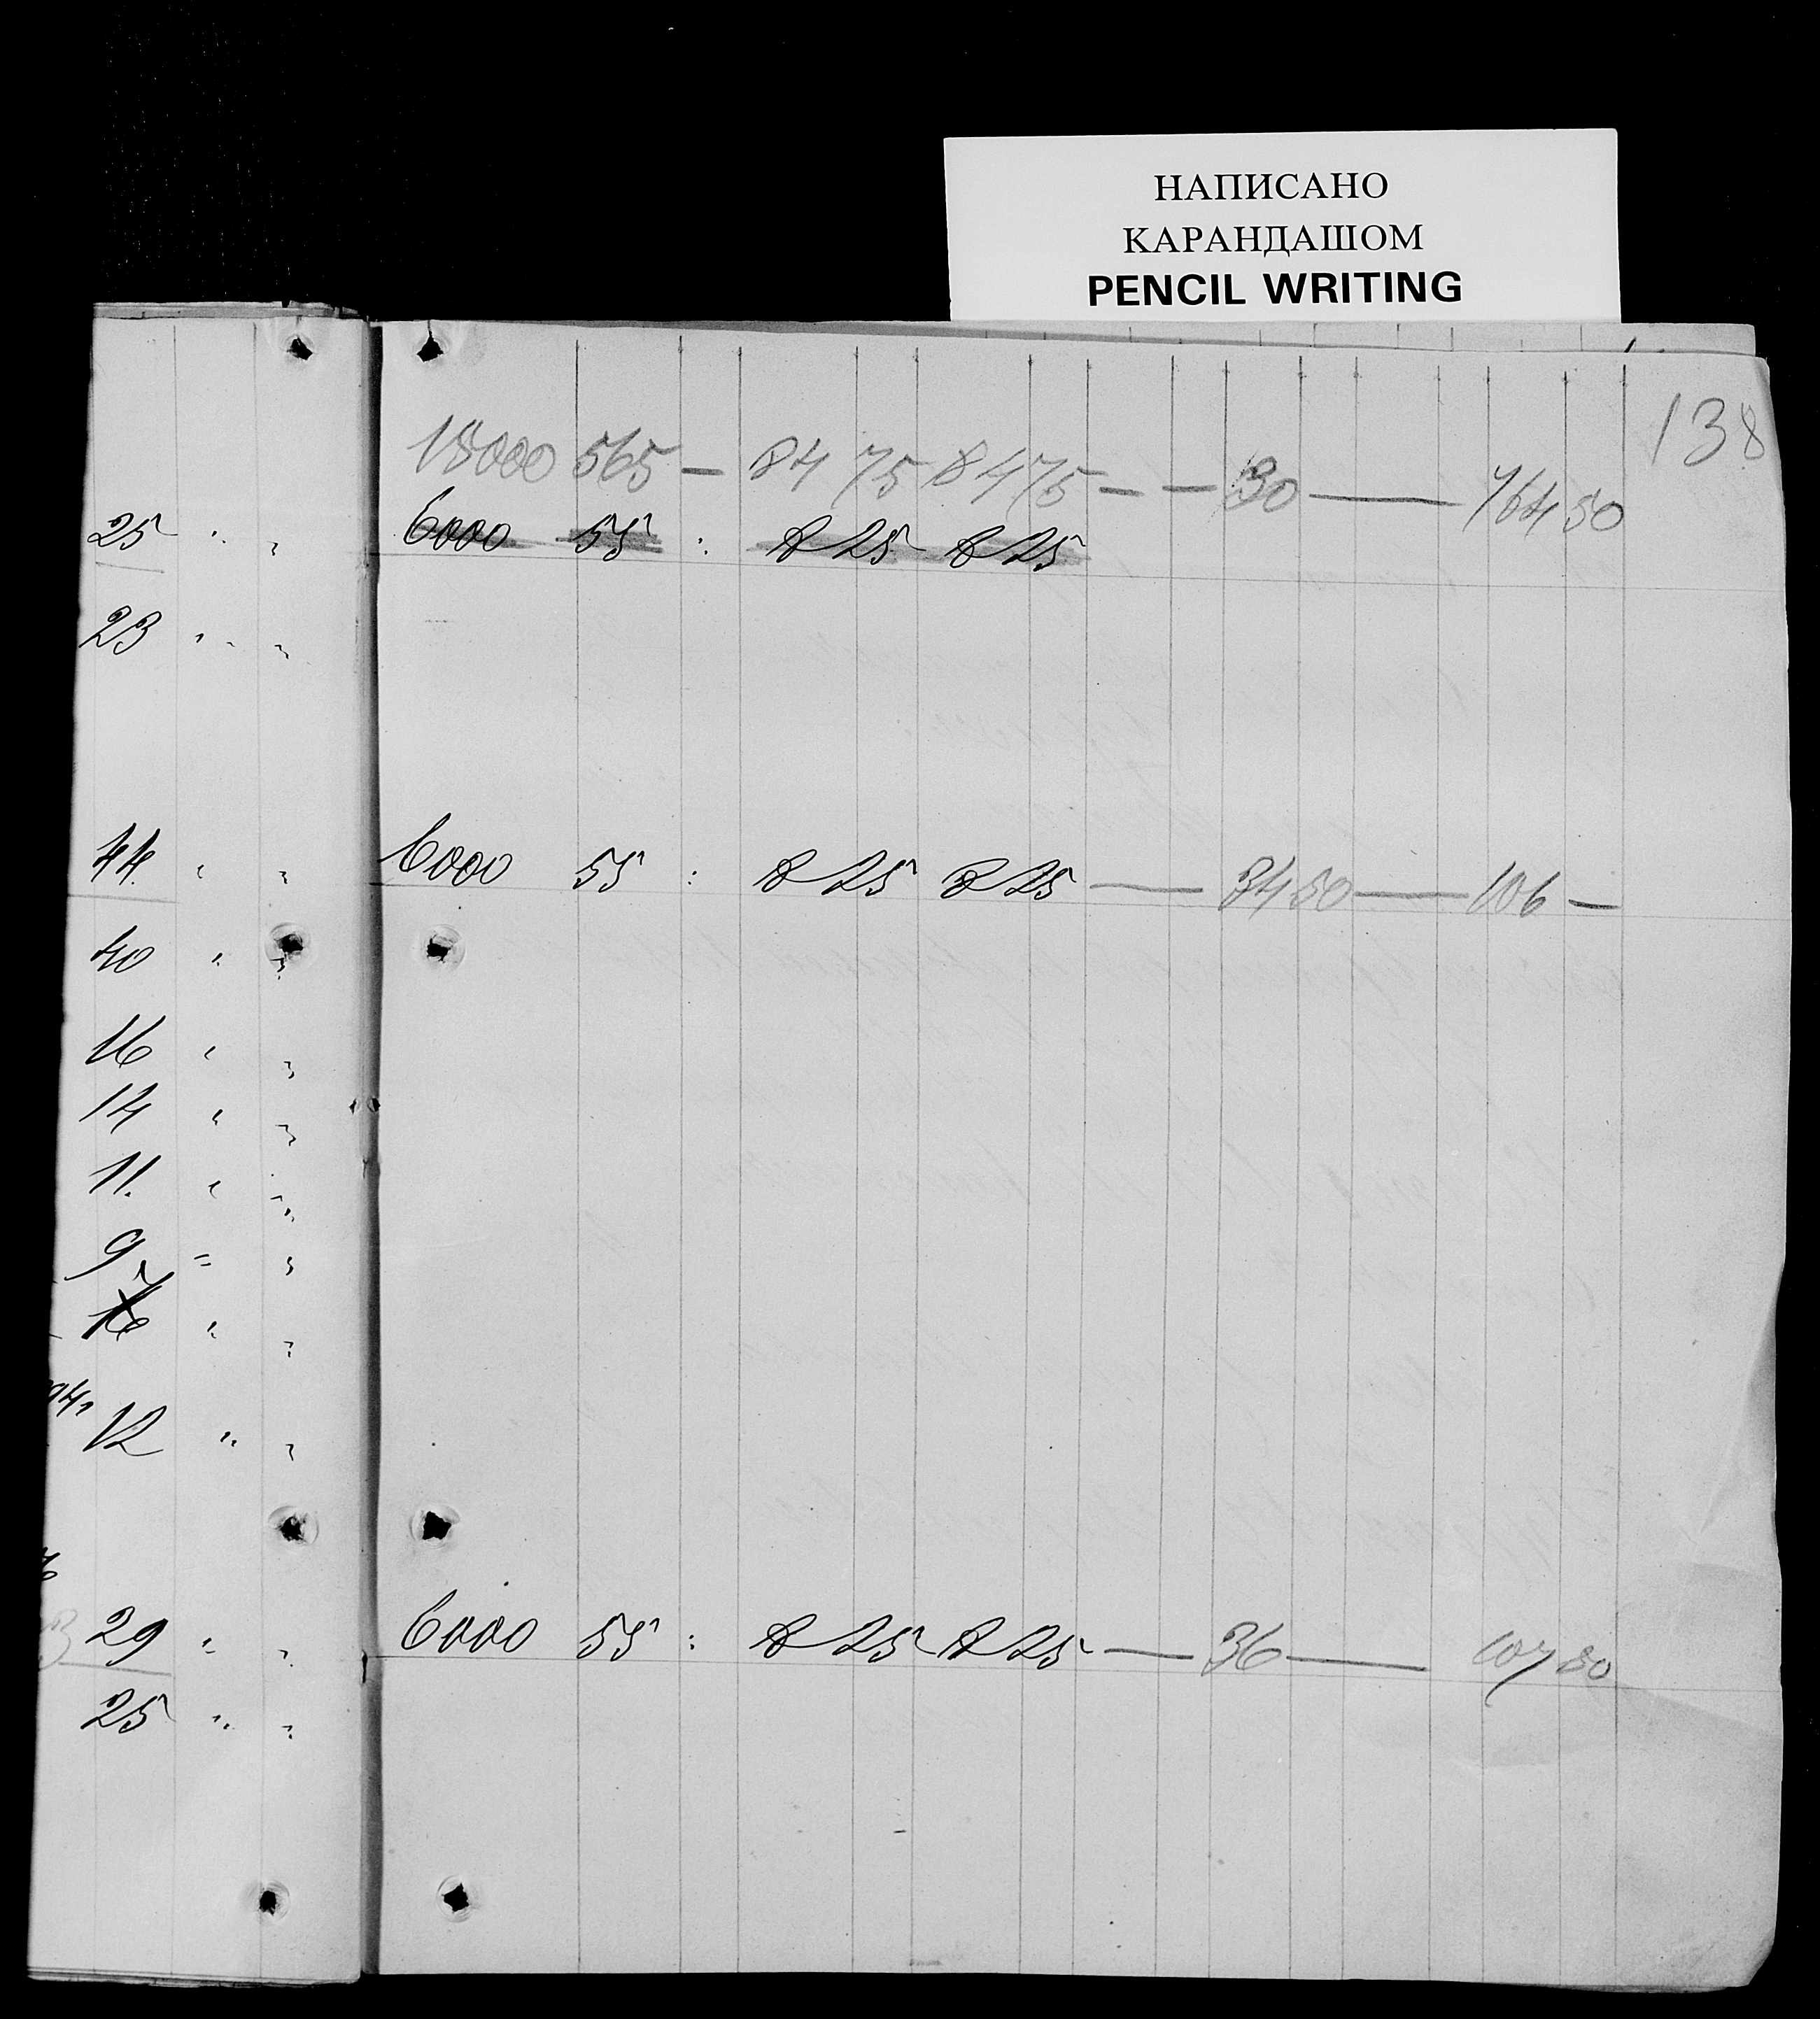 НАПИСАНО
КАРАНДАШОМ
PENCIL WRITING
138
18000 565 — 84 75 84 75 — — 30 — 764 50
25 " " 6000 55 : 8 25 8 25
23 " "
44. " " 6000 55 : 8 25 8 25 — 34 50 — 106 —
40 " "
16 " "
14 " "
11. " "
9 " "
7
16 " "
94,
12 " "
3 29 " " 6000 55 : 8 25 8 25 — 36 — 107 50
25 " "